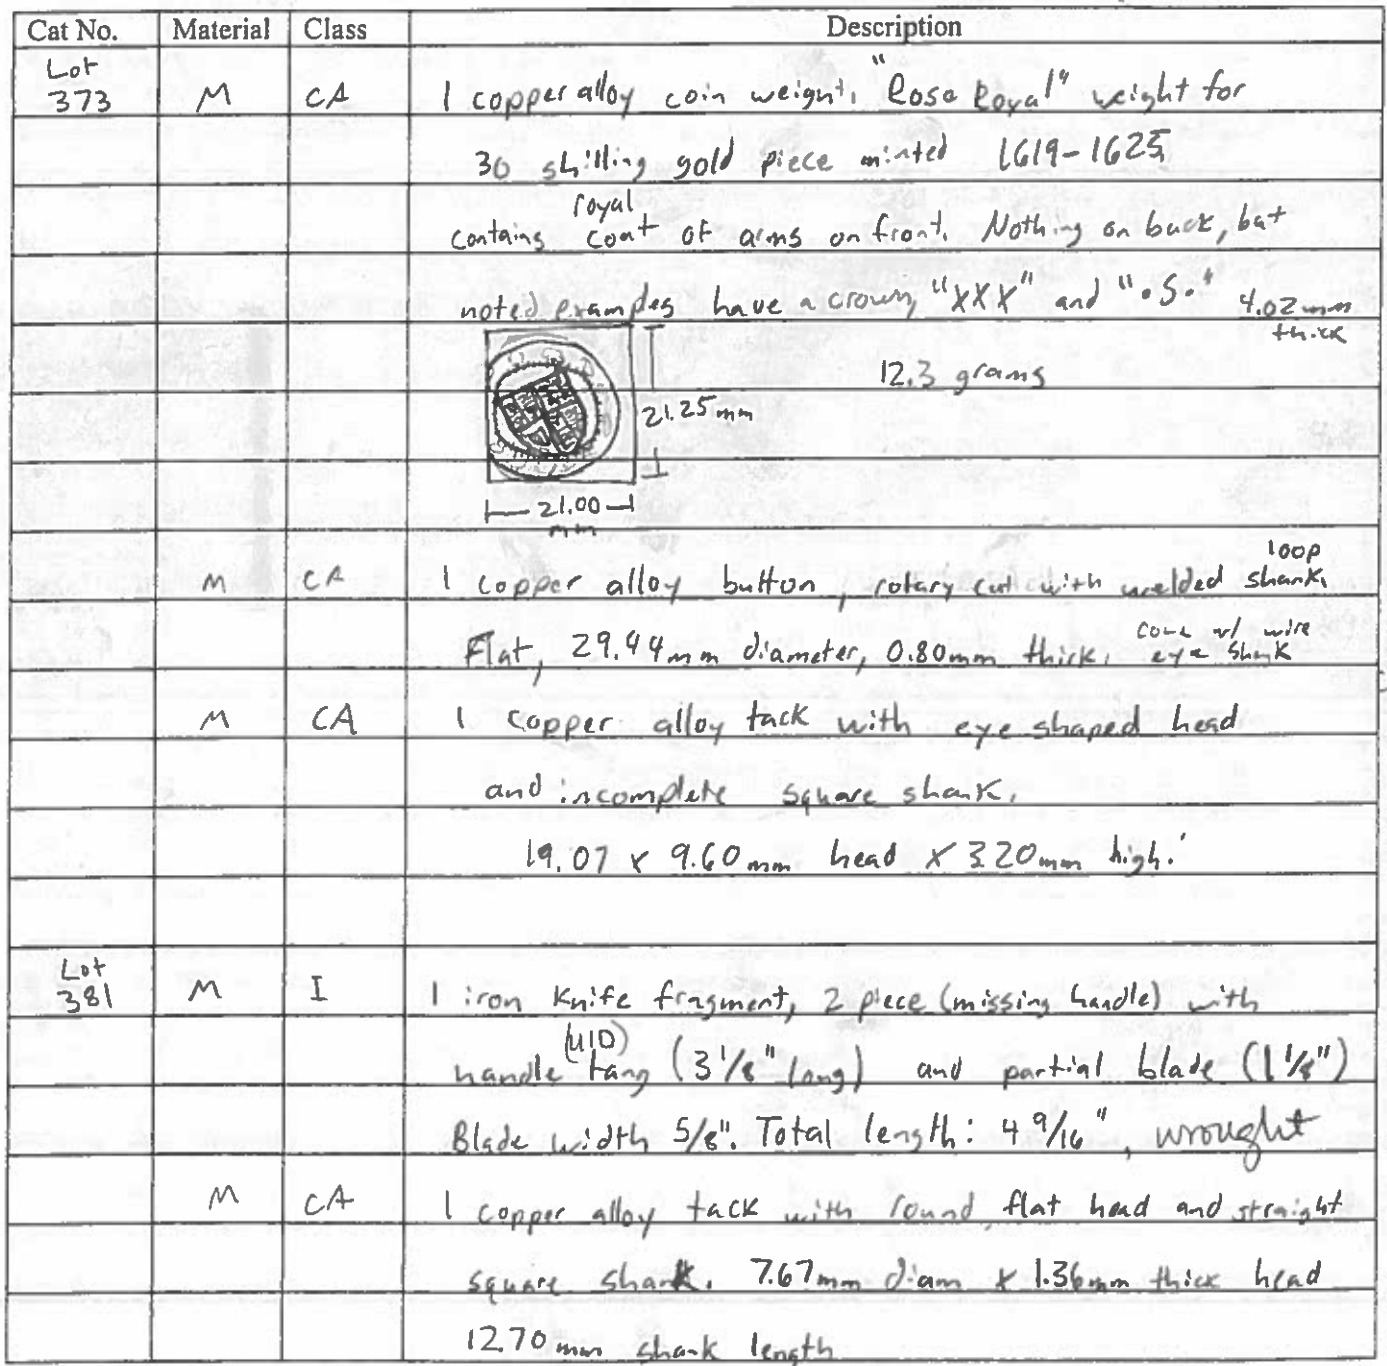 Cat No. Material Class Description
Lot
373 M CA 1 copper alloy coin weight, "Rose Royal" weight for
30 shilling gold piece minted 1619-1625
royal
contains coat of arms on front. Nothing on back, but
noted examples have a crown, "XXX" and "•S•" 4.02 mm
thick
12.3 grams
21.25 mm
21.00
mm
loop
M CA 1 copper alloy button, rotary cut with welded shank.
Flat, 29.44mm diameter, 0.80mm thick. cone w/ wire
eye shank
M CA 1 copper alloy tack with eye shaped head
and incomplete square shank.
19.07 x 9.60 mm head x 3.20 mm high.
Lot
381 M I 1 iron knife fragment, 2 piece (missing handle) with
(UID)
handle tang (3 1/8" long) and partial blade (1 1/8")
Blade width 5/8". Total length: 4 9/16", wrought
M CA 1 copper alloy tack with round, flat head and straight
square shank. 7.67mm diam x 1.36mm thick head
12.70 mm shank length